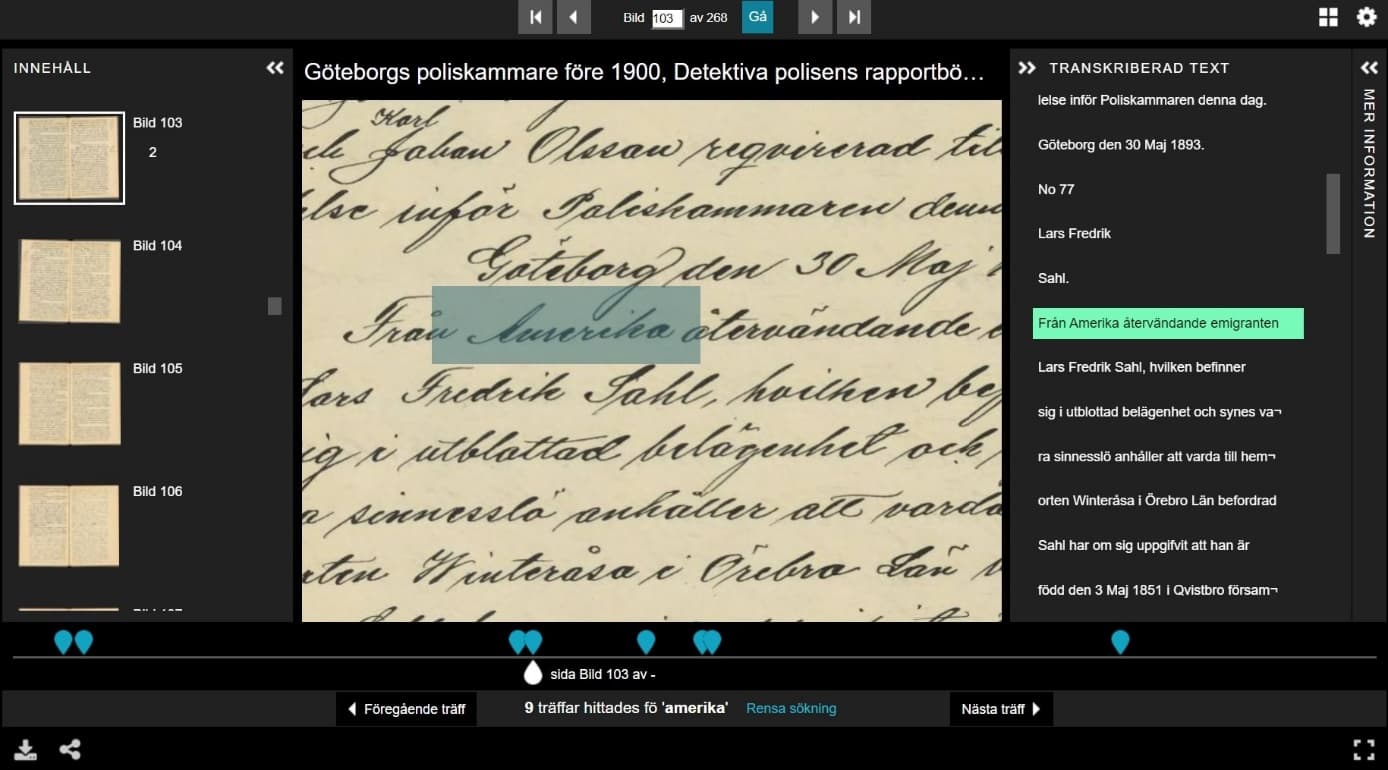 Bild 103 av 268 Gå
INNEHÅLL
Bild 103
2
Bild 104
Bild 105
Bild 106
Göteborgs poliskammare före 1900, Detektiva polisens rapportbö…
Karl
Johan Olssan reqvirerad till
else inför Poliskammaren denn
Göteborg den 30 Maj
Från Amerika återvändande e
Lars Fredrik Sahl, hvilken bef
sig i utblottad belägenhet och
a sinnesslö anhåller att varda
rten Winteråsa i Örebro Län
TRANSKRIBERAD TEXT
lelse inför Poliskammaren denna dag.
Göteborg den 30 Maj 1893.
No 77
Lars Fredrik
Sahl.
Från Amerika återvändande emigranten
Lars Fredrik Sahl, hvilken befinner
sig i utblottad belägenhet och synes va¬
ra sinnesslö anhåller att varda till hem¬
orten Winteråsa i Örebro Län befordrad
Sahl har om sig uppgifvit att han är
född den 3 Maj 1851 i Qvistbro försam¬
MER INFORMATION
sida Bild 103 av -
Föregående träff
9 träffar hittades fö 'amerika'
Rensa sökning
Nästa träff